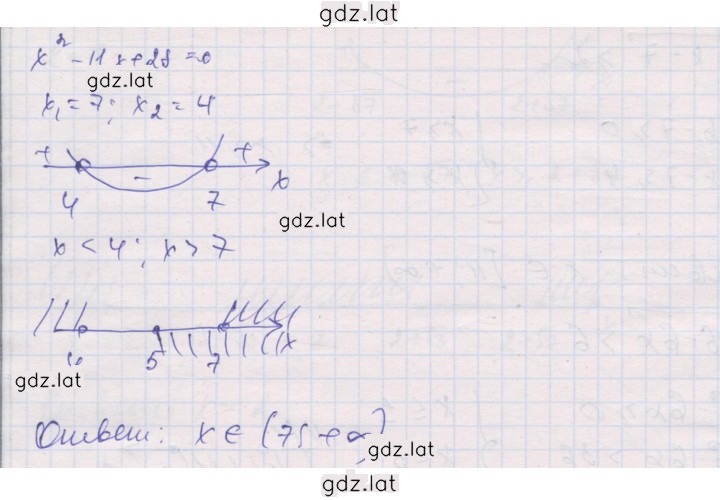 gdz.lat
x² - 11x + 28 = 0
gdz.lat
x₁ = 7; x₂ = 4
+ - + x
4 7
gdz.lat
x < 4; x > 7
5 7 x
gdz.lat
Ответ: x ∈ (7; +∞)
gdz.lat
gdz.lat